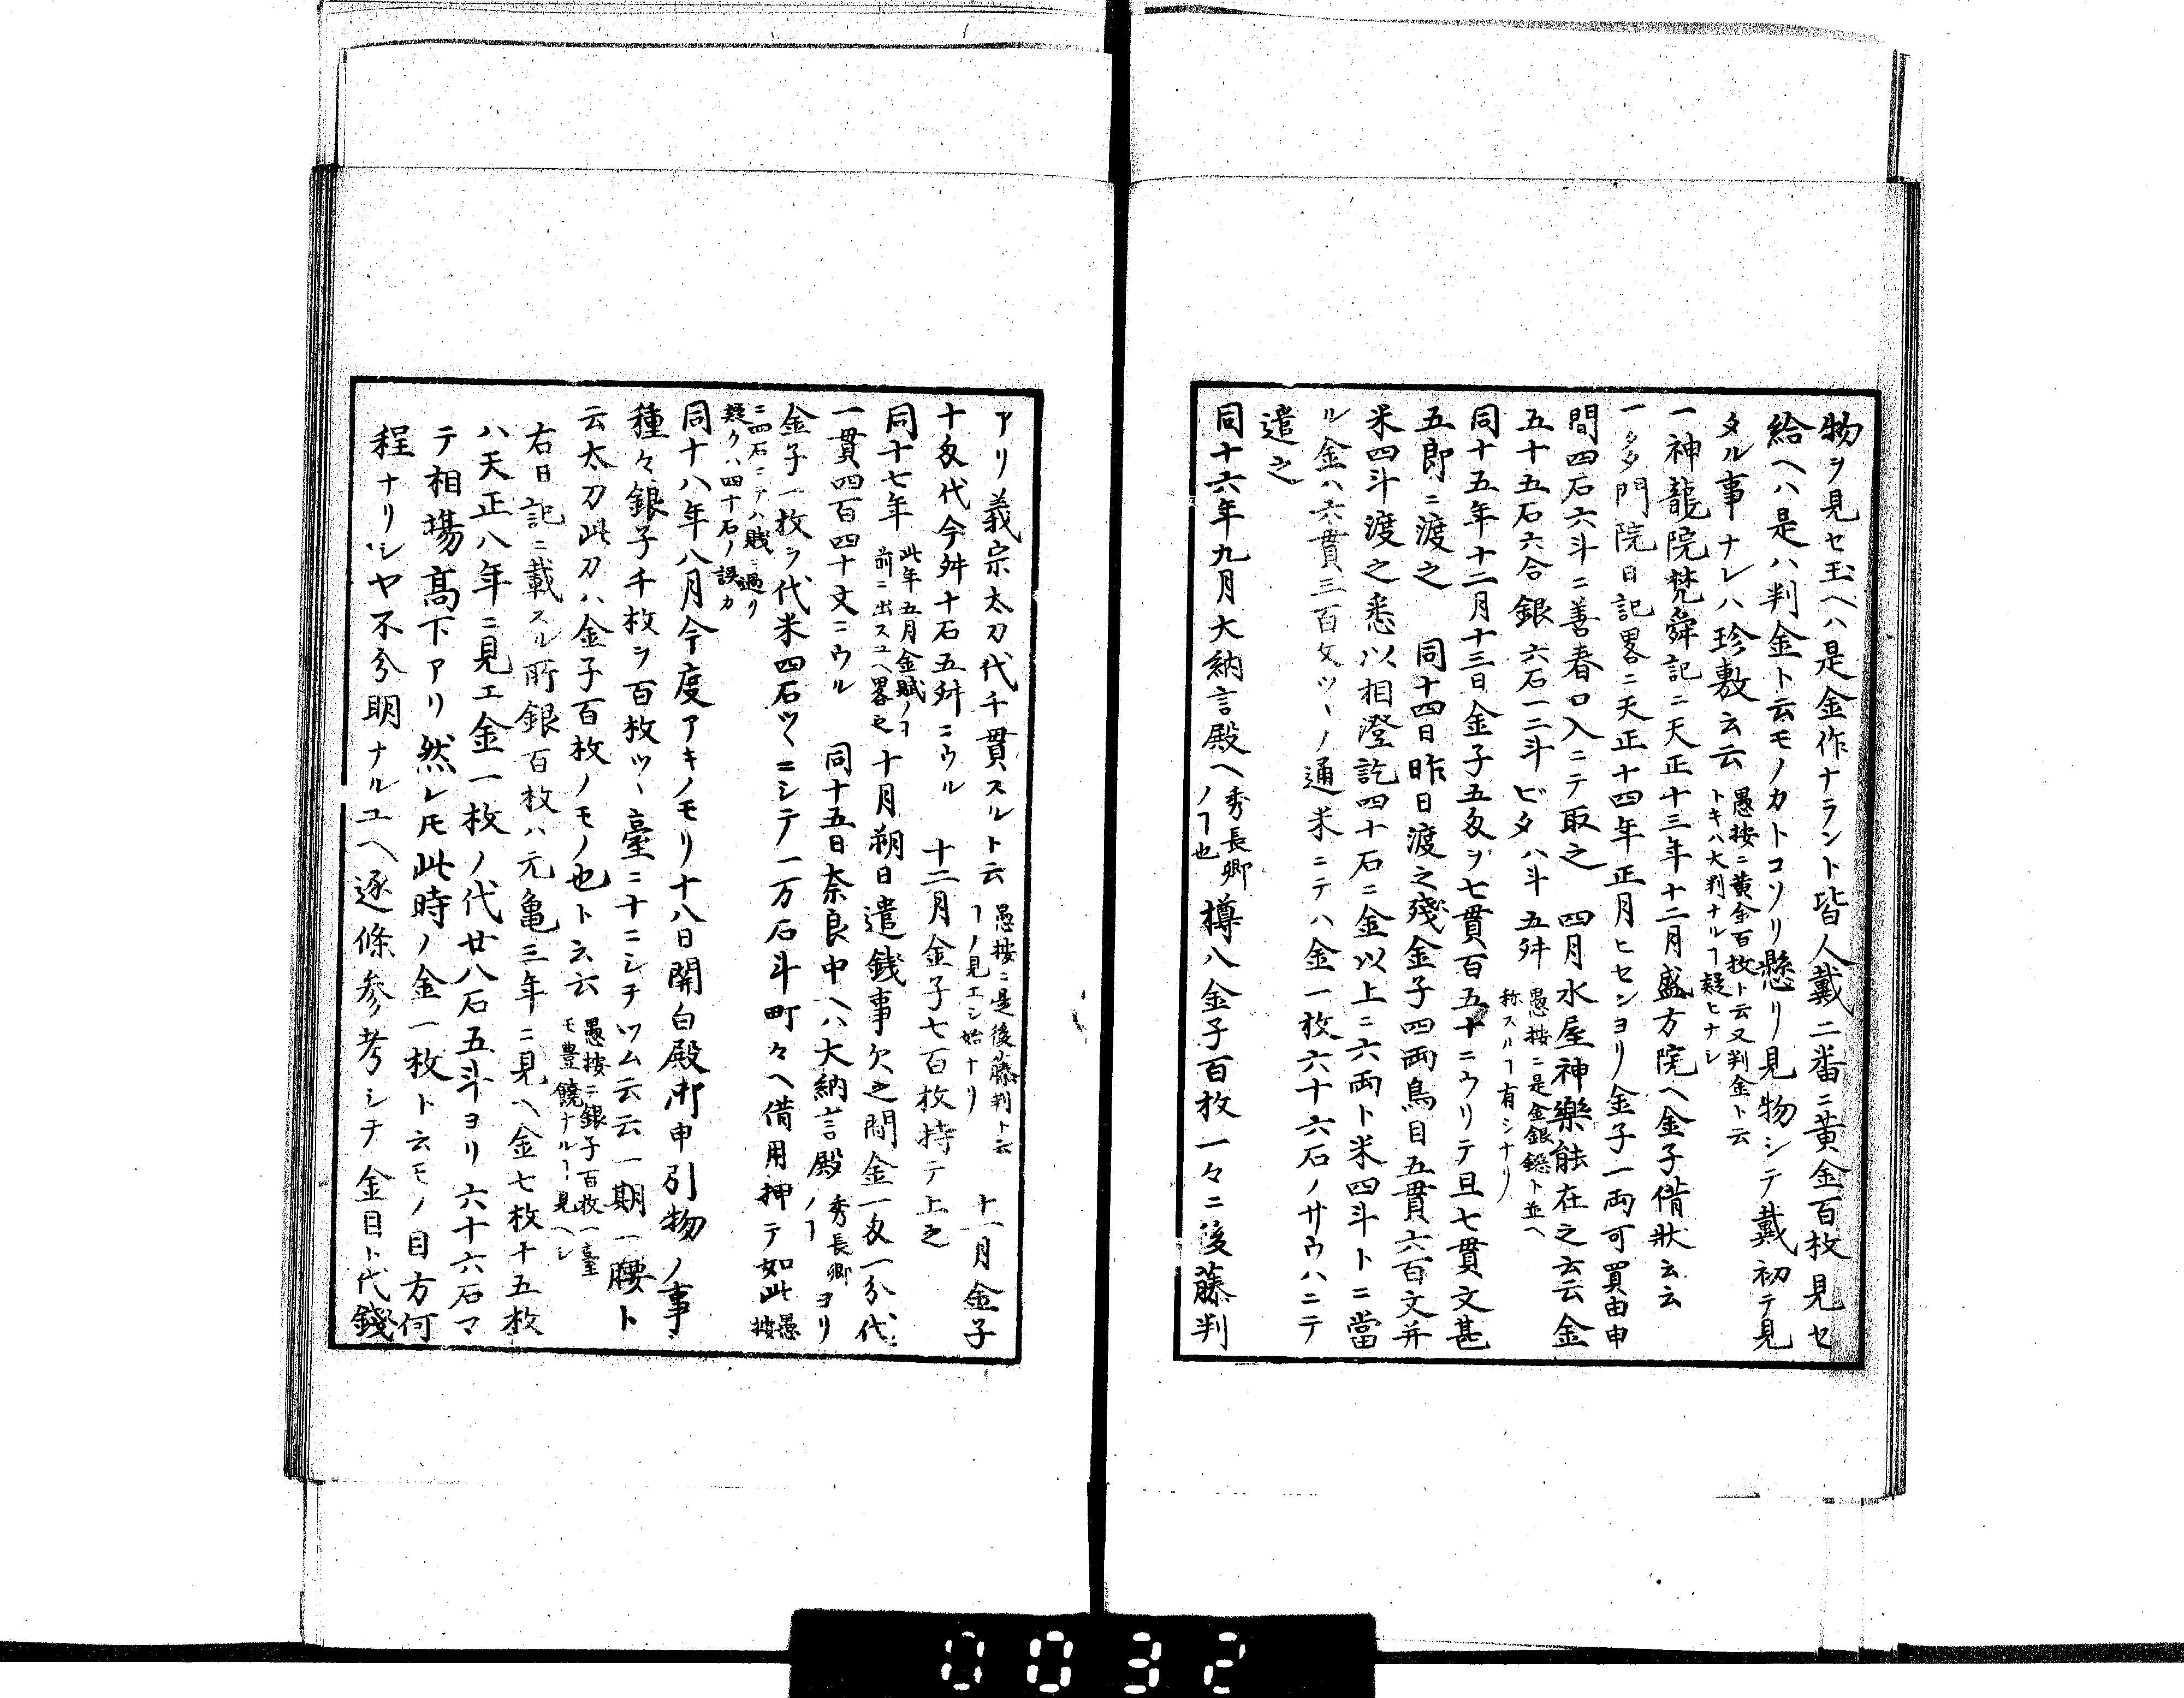 物ヲ見セ玉ヘハ是金作ナラント皆人戴二番ニ黄金百枚見セ
給ヘハ是ハ判金ト云モノカトコソリ懸リ見物シテ戴初テ見
タル事ナレハ珍敷云云
愚按ニ黄金百枚ト云又判金ト云
トキハ大判ナルヿ疑ヒナシ
一神龍院梵舜記ニ天正十三年十二月盛方院ヘ金子借状云云
一多門院日記畧ニ天正十四年正月ヒセンヨリ金子一両可買由申
間四石六斗ニ善春口入ニテ取之　四月水屋神樂能在之云云金
五十五石六合銀六石一二斗ビタハ斗五舛
愚按ニ是金銀鐚ト並ヘ
称スルヿ有シナリ
同十五年十二月十三日金子五匁ヲ七貫百五十ニウリテ且七貫文甚
五郎ニ渡之　同十四日昨日渡之殘金子四両鳥目五貫六百文并
米四斗渡之悉以相澄訖四十石ニ金以上ニ六両ト米四斗トニ當
ル金ハ六貫三百文ツヽノ通米ニテハ金一枚六十六石ノサウハニテ
遣之
同十六年九月大納言殿ヘ
秀長卿
ノヿ也
樽八金子百枚一々ニ後藤判
アリ義宗太刀代千貫スルト云
愚按ニ是後藤判ト云
ヿノ見エシ始ナリ
十一月金子
十匁代今舛十石五舛ニウル　十二月金子七百枚持テ上之
同十七年
此年五月金賦ノヿ
前ニ出スユヘ畧之
十月朔日遣銭事欠之間金一匁一分代
一貫四百四十文ニウル　同十五日奈良中ヘハ大納言殿
秀長卿
ノヿ
ヨリ
金子一枚ヲ代米四石ツヽニシテ一万石斗町々ヘ借用押テ如此
愚
按
ニ四石ニテハ賎ニ過リ
疑クハ四十石ノ誤カ
同十八年八月今度アキノモリ十八日関白殿所申引物ノ事
種々銀子千枚ヲ百枚ツヽ臺ニ十ニシテツム云云一期一腰ト
云太刀此刀ハ金子百枚ノモノ也ト云云
愚按ニ銀子百枚一臺
モ豊饒ナルヿ見ヘシ
右日記ニ載スル所銀百枚ハ元亀三年ニ見ヘ金七枚十五枚
ハ天正八年ニ見エ金一枚ノ代廿八石五斗ヨリ六十六石マ
テ相場髙下アリ然レ𪜈此時ノ金一枚ト云モノ目方何
程ナリシヤ不分明ナルユヘ逐條参考シテ金目ト代錢
0032